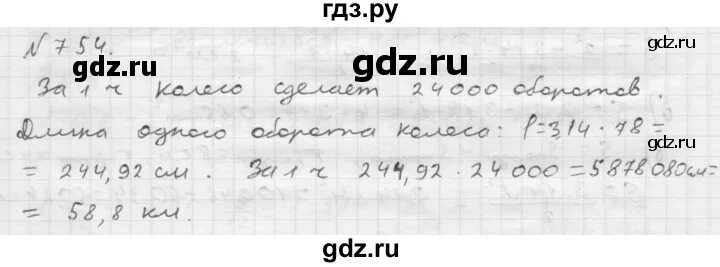 гдз.ру
N 754.
gdz.ru
gdz.ru
За 1 ч колесо сделает 24000 оборотов.
Длина одного оборота колеса: P=3,14·78=
= 244,92 см. За 1 ч 244,92·24000=5878080см=
= 58,8 км.
gdz.ru
gdz.ru